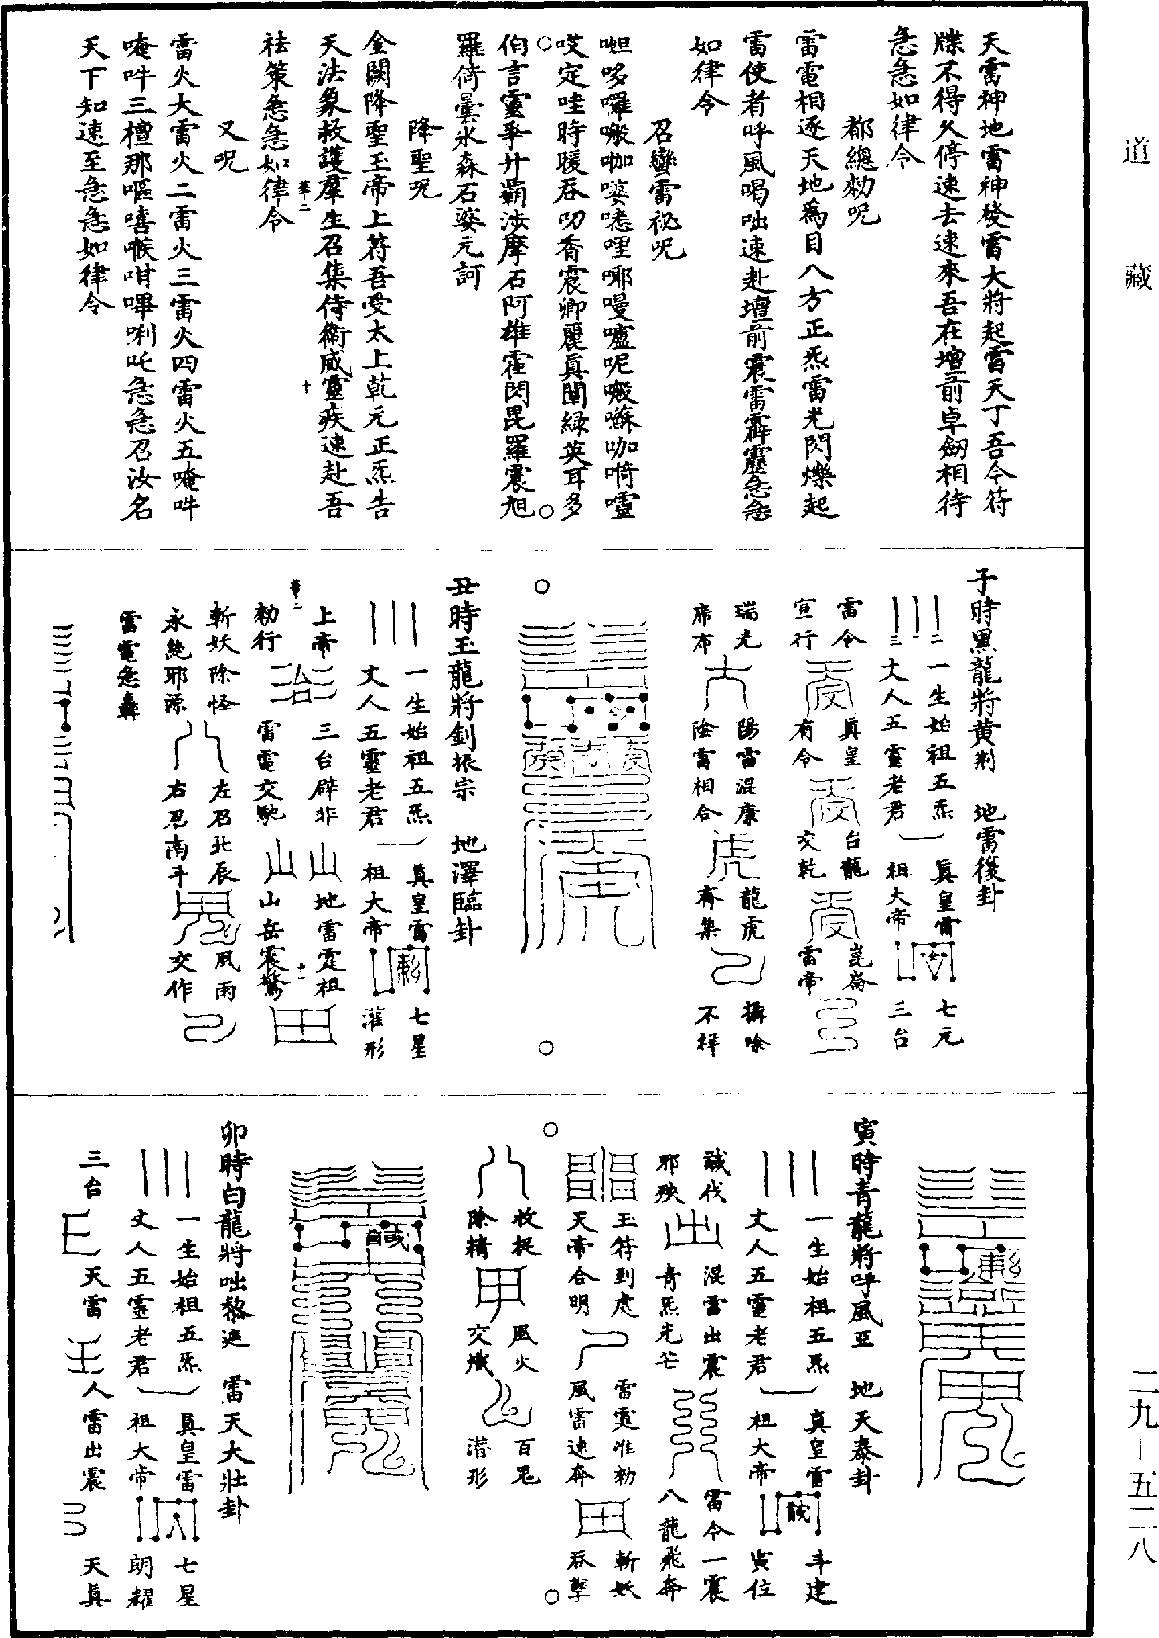 道藏
天雷神地雷神發雷大將起雷天丁吾今符
牒不得久停速去速來吾在壇前卓劒相待
急急如律令
都總勑呪
雷電相逐天地爲目八方正炁雷光閃爍起
雷使者呼風喝咄速赴壇前震雷霹靂急急
如律令
召蠻雷秘呪
呾哆囉㘄咖𠼝嘧哩㖿嘪嚧呢㘄𠽌咖㗨嚧
哎定哇時暖吞叨香震卿麗真闡綠英耳多
伯言靈爭廾霸沙摩石阿雄霍閃毘羅震旭
羅倚曇水森石娑元訶
降聖呪
金闕降聖玉帝上符吾受太上乾元正炁告
天法象救護羣生召集侍衛威靈疾速赴吾
祛策急急如律令
又呪
雷火大雷火二雷火三雷火四雷火五唵吽
唵吽三檀那嘔嘻㗋咁嗶唎吒急急召汝名
天下知速至急急如律令
子時黑龍將黃荆 地雷復卦
二一生始祖五炁 真皇雷 七元
三丈人五靈老君 祖大帝 三台
雷令 真皇 台龍 崑崙
宣行 有令 交乾 雷帝
瑞光 陽雷混康 龍虎 攝唅
席布 陰雷相合 奔集 不祥
丑時玉龍將釗振宗 地澤臨卦
一生始祖五炁 真皇雷 七星
丈人五靈老君 祖大帝 潅形
上帝 三台辟非 地雷霆祖
勑行 雷電交馳 山岳震驚
斬妖除怪 左召北辰 風雨
永絶邪源 右召南斗 交作
雷電急轟
寅時青龍將呼風亞 地天泰卦
一生始祖五炁 真皇雷 斗建
丈人五靈老君 祖大帝 寅位
誠伐 混雷出震 雷令一震
邪殃 青炁光芒 八龍飛奔
玉符到處 雷霆准勑 斬妖
天帝合明 風雷速奔 吞孽
收捉 風火 百鬼
除精 交熾 潜形
卯時白龍將咄黎遮 雷天大壯卦
一生始祖五炁 真皇雷 七星
丈人五靈老君 祖大帝 朗耀
三台 天雷 人雷出震 天真
二九—五二八